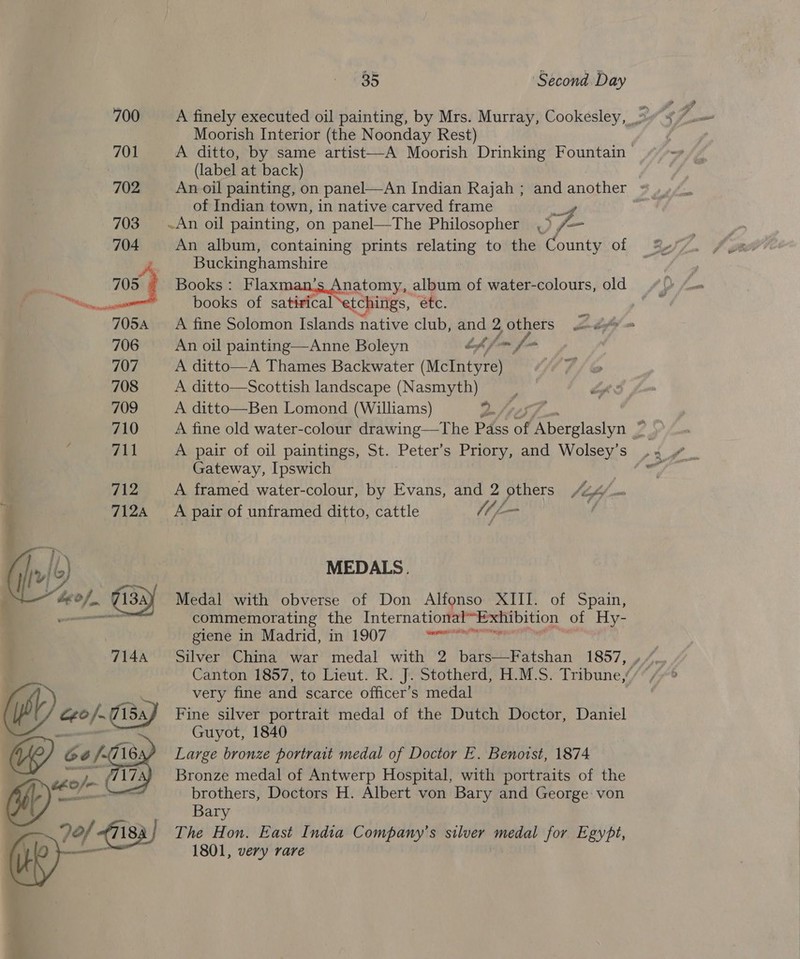 35 Second Day
700 A finely executed oil painting, by Mrs. Murray, Cookesley,
Moorish Interior (the Noonday Rest)
701 A ditto, by same artist—A Moorish Drinking Fountain
(label at back)
702 An oil painting, on panel—An Indian Rajah ; and another
of Indian town, in native carved frame
703 An oil painting, on panel—The Philosopher
704 An album, containing prints relating to the County of
Buckinghamshire
705 Books : Flaxman's Anatomy, album of water-colours, old
books of satirical etchings, etc.
705A A fine Solomon Islands native club, and 2 others
706 An oil painting—Anne Boleyn
707 A ditto—A Thames Backwater (McIntyre)
708 A ditto—Scottish landscape (Nasmyth)
709 A ditto—Ben Lomond (Williams)
710 A fine old water-colour drawing—The Pass of Aberglaslyn
711 A pair of oil paintings, St. Peter's Priory, and Wolsey's
Gateway, Ipswich
712 A framed water-colour, by Evans, and 2 others
712A A pair of unframed ditto, cattle
MEDALS.
713A Medal with obverse of Don Alfonso XIII. of Spain,
commemorating the International Exhibition of Hy-
giene in Madrid, in 1907
714A Silver China war medal with 2 bars—Fatshan 1857,
Canton 1857, to Lieut. R. J. Stotherd, H.M.S. Tribune,
very fine and scarce officer's medal
715A Fine silver portrait medal of the Dutch Doctor, Daniel
Guyot, 1840
716A Large bronze portrait medal of Doctor E. Benoist, 1874
717A Bronze medal of Antwerp Hospital, with portraits of the
brothers, Doctors H. Albert von Bary and George von
Bary
718A The Hon. East India Company's silver medal for Egypt,
1801, very rare